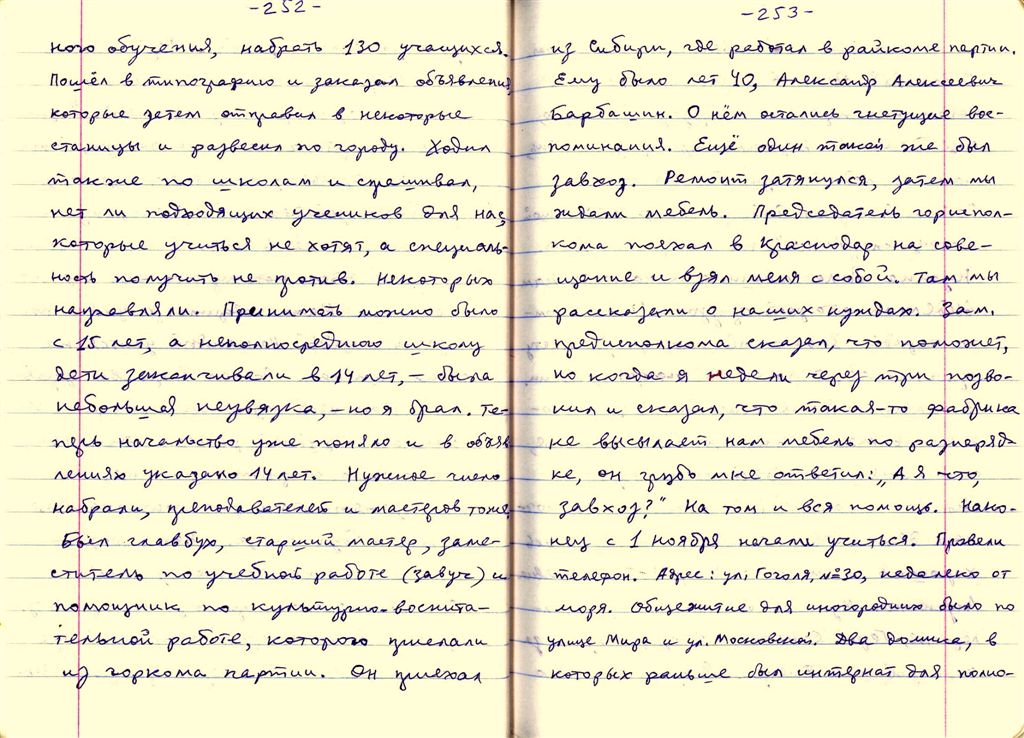 -252-
ного обучения, набрать 130 учащихся.
Пошёл в типографию и заказал объявления,
которые затем отправил в некоторые
станицы и развесил по городу. Ходил
также по школам и спрашивал,
нет ли подходящих учеников для нас,
которые учиться не хотят, а специаль-
ность получить не против. Некоторых
направляли. Принимать можно было
с 15 лет, а неполносреднюю школу
дети заканчивали в 14 лет, – была
небольшая неувязка, – но я брал. Те-
перь начальство уже поняло и в объяв
лениях указано 14 лет. Нужное число
набрали, преподавателей и мастеров тоже.
Был главбух, старший мастер, заме-
ститель по учебной работе (завуч) и
помощник по культурно-воспита-
тельной работе, которого прислали
из горкома партии. Он приехал
-253-
из Сибири, где работал в райкоме партии.
Ему было лет 40, Александр Алексеевич
Барбашин. О нём остались гнетущие вос-
поминания. Ещё один такой же был
завхоз. Ремонт затянулся, затем мы
ждали мебель. Председатель горисполкома-
кома поехал в Краснодар на сове-
щание и взял меня с собой. Там мы
рассказали о наших нуждах. Зам.
предисполкома сказал, что поможет,
но когда я недели через три позво-
нил и сказал, что такая-то фабрика
не высылает нам мебель по разнаряд-
ке, он грубо мне ответил: „А я что,
завхоз?" На том и вся помощь. Нако-
нец с 1 ноября начали учиться. Провели
телефон. Адрес: ул. Гоголя, №30, недалеко от
моря. Общежитие для иногородних было по
улице Мира и ул. Московской. Два домика, в
которых раньше был интернат для полио-